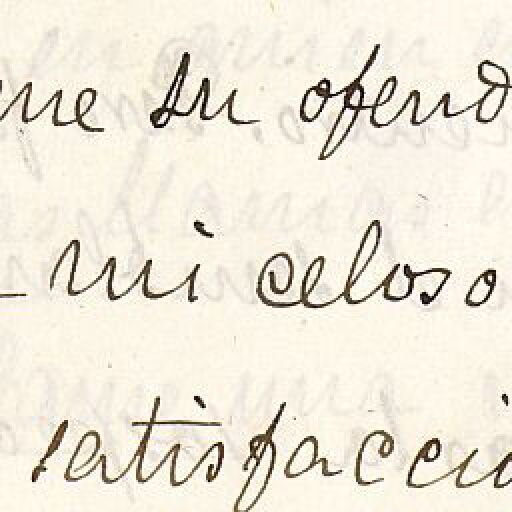 ene su ofend
mi celoso
satisfacció